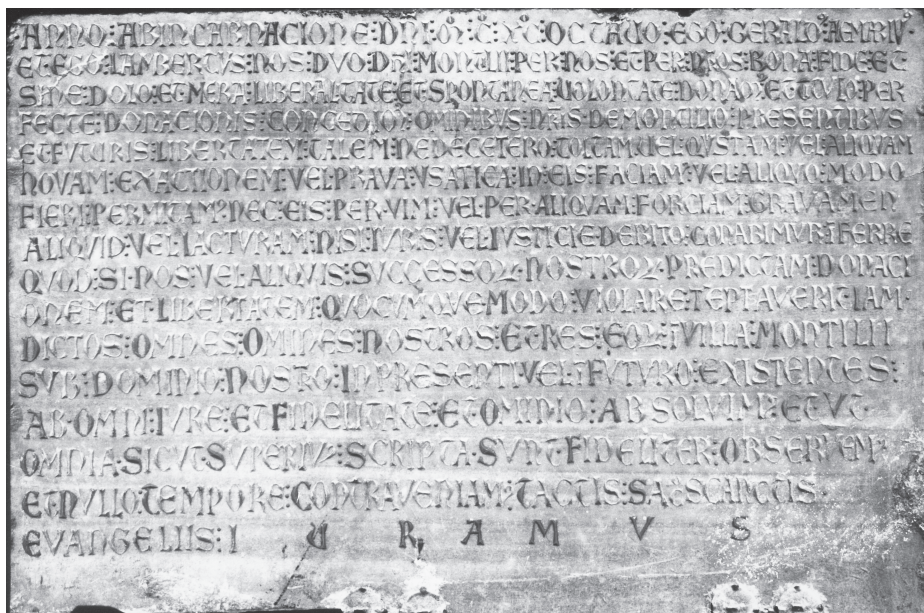 ANNO : AB INCARNACIONE : DNI : M : C : XC : OCTAVO : EGO : GERALD : AEMARIV
ET EGO : LAMBERTVS : NOS : DVO : DNI : MONTILII : PER NOS : ET PER NROS : BONA FIDE : ET
SINE : DOLO : ET MERA : LIBERALTATE : ET SPONTANEA : VOLONTATE : DONAM : ET TITVLO : PER
FECTE : DONACIONIS : CONCEDIM : OMINIBVS : NRIS : DE MONTILIO : PRESENTIBVS
ET FVTVRIS : LIBERTATEM : TALEM : NE DE CETERO : TOLTAM : VEL QVSTAM : VEL ALIQVAM
NOVAM : EXACTIONEM : VEL PRAVA : VSATICA : IN EIS : FACIAM : VEL ALIQVO : MODO
FIERI : PERMITAM : NEC : EIS : PER VIM : VEL PER ALIQVAM : FORCIAM : GRAVAMEN
ALIQVID : VEL : IACTVRAM : NISI : IVRIS : VEL IVSTICIE DEBITO : CONABIMVR : INFERRE
QVOD : SI NOS : VEL : ALIQVIS : SVCCESSOR : NOSTROR : PREDICTAM : DONACI
ONEM : ET LIBERTATEM : QVOCVMQVE MODO : VIOLARE : TEPTAVERIT : IAM
DICTOS : OMNES : OMINES : NOSTROS : ET RES : EOR : I VILLA : MONTILII
SVB : DOMINIO : NOSTRO : IN PRESENTI : VEL I FVTVRO : EXISTENTES :
AB OMNI : IVRE : ET FIDELITATE : ET OMINIO : ABSOLVIM : ET VT
OMNIA : SICVT : SVPERIVS : SCRIPTA : SVNT : FIDELITER : OBSERVEM
ET NVLLO TEMPORE : CONTRAVENIAM : TACTIS : SACS SCANCTIS
EVANGELIIS : I V R A M V S